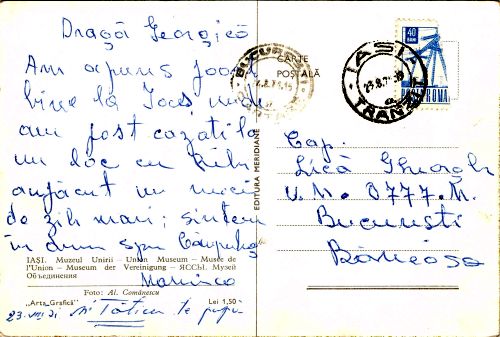 Dragă Georgică
Am ajuns foarte
bine la Iași, unde
am fost cazați la
un loc cu
am făcut un mic
de zile mari; suntem
în drum spre Câmpulung
IAȘI. Muzeul Unirii — Union Museum — Musée de
l'Union — Museum der Vereinigung — ЯССЫ. Музей
Объединения
Marinco
Foto: Al. Comănescu
„Arta Grafică"
Lei 1,50
23.VIII.71
și Tăticu te pupă
EDITURA MERIDIANE
CARTE
POȘTALĂ
BUCUREȘTI
40
BANI
POSTA ROMANA
IAȘI
TRANZIT
Cap.
Lică Gheorghe
U.M. 0777.M.
București
Băneasa